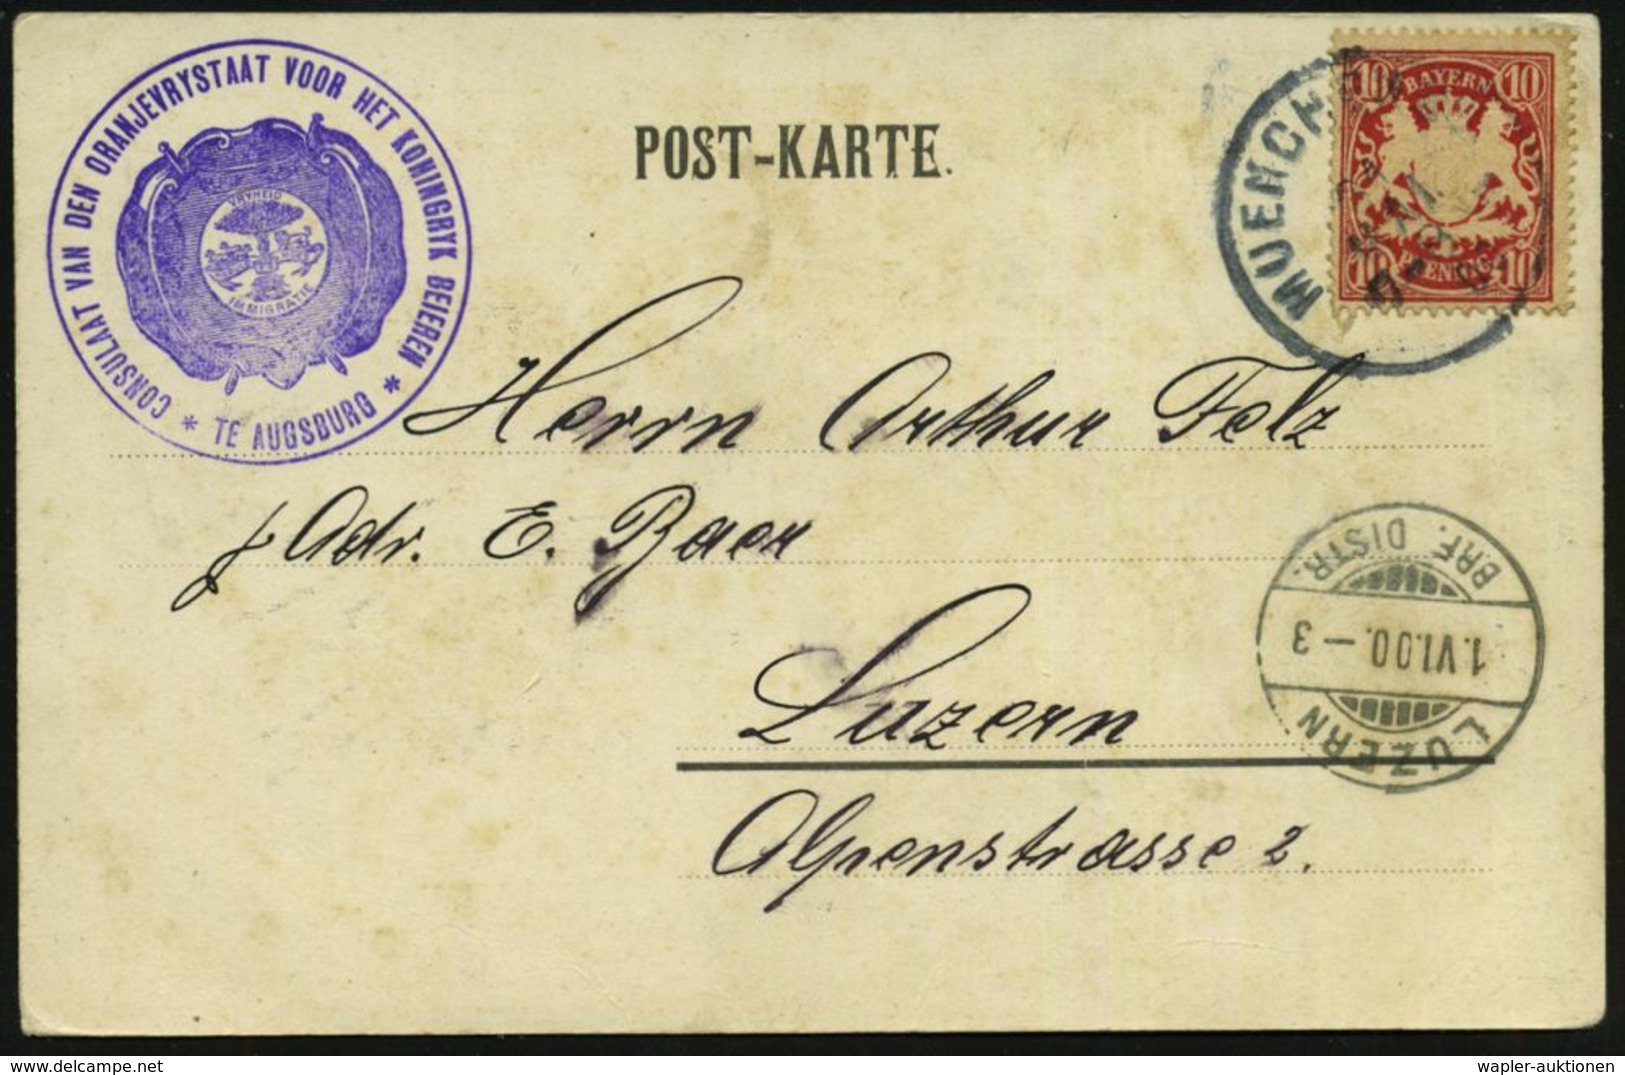 CONSULAAT VAN DEN ORANJEVRYSTAAT VOOR HET KONINGRYK BEIEREN
* TE AUGSBURG *
VRYHEID
IMMIGRATIE
POST-KARTE.
MUENCHEN
10 BAYERN 10
10 PFENNIG 10
Herrn Arthur Felz
p. Adr. E. Baer
Luzern
Alpenstrasse 2.
LUZERN
1.VI.00.–3
BRF. DISTR.
wapler-auktionen